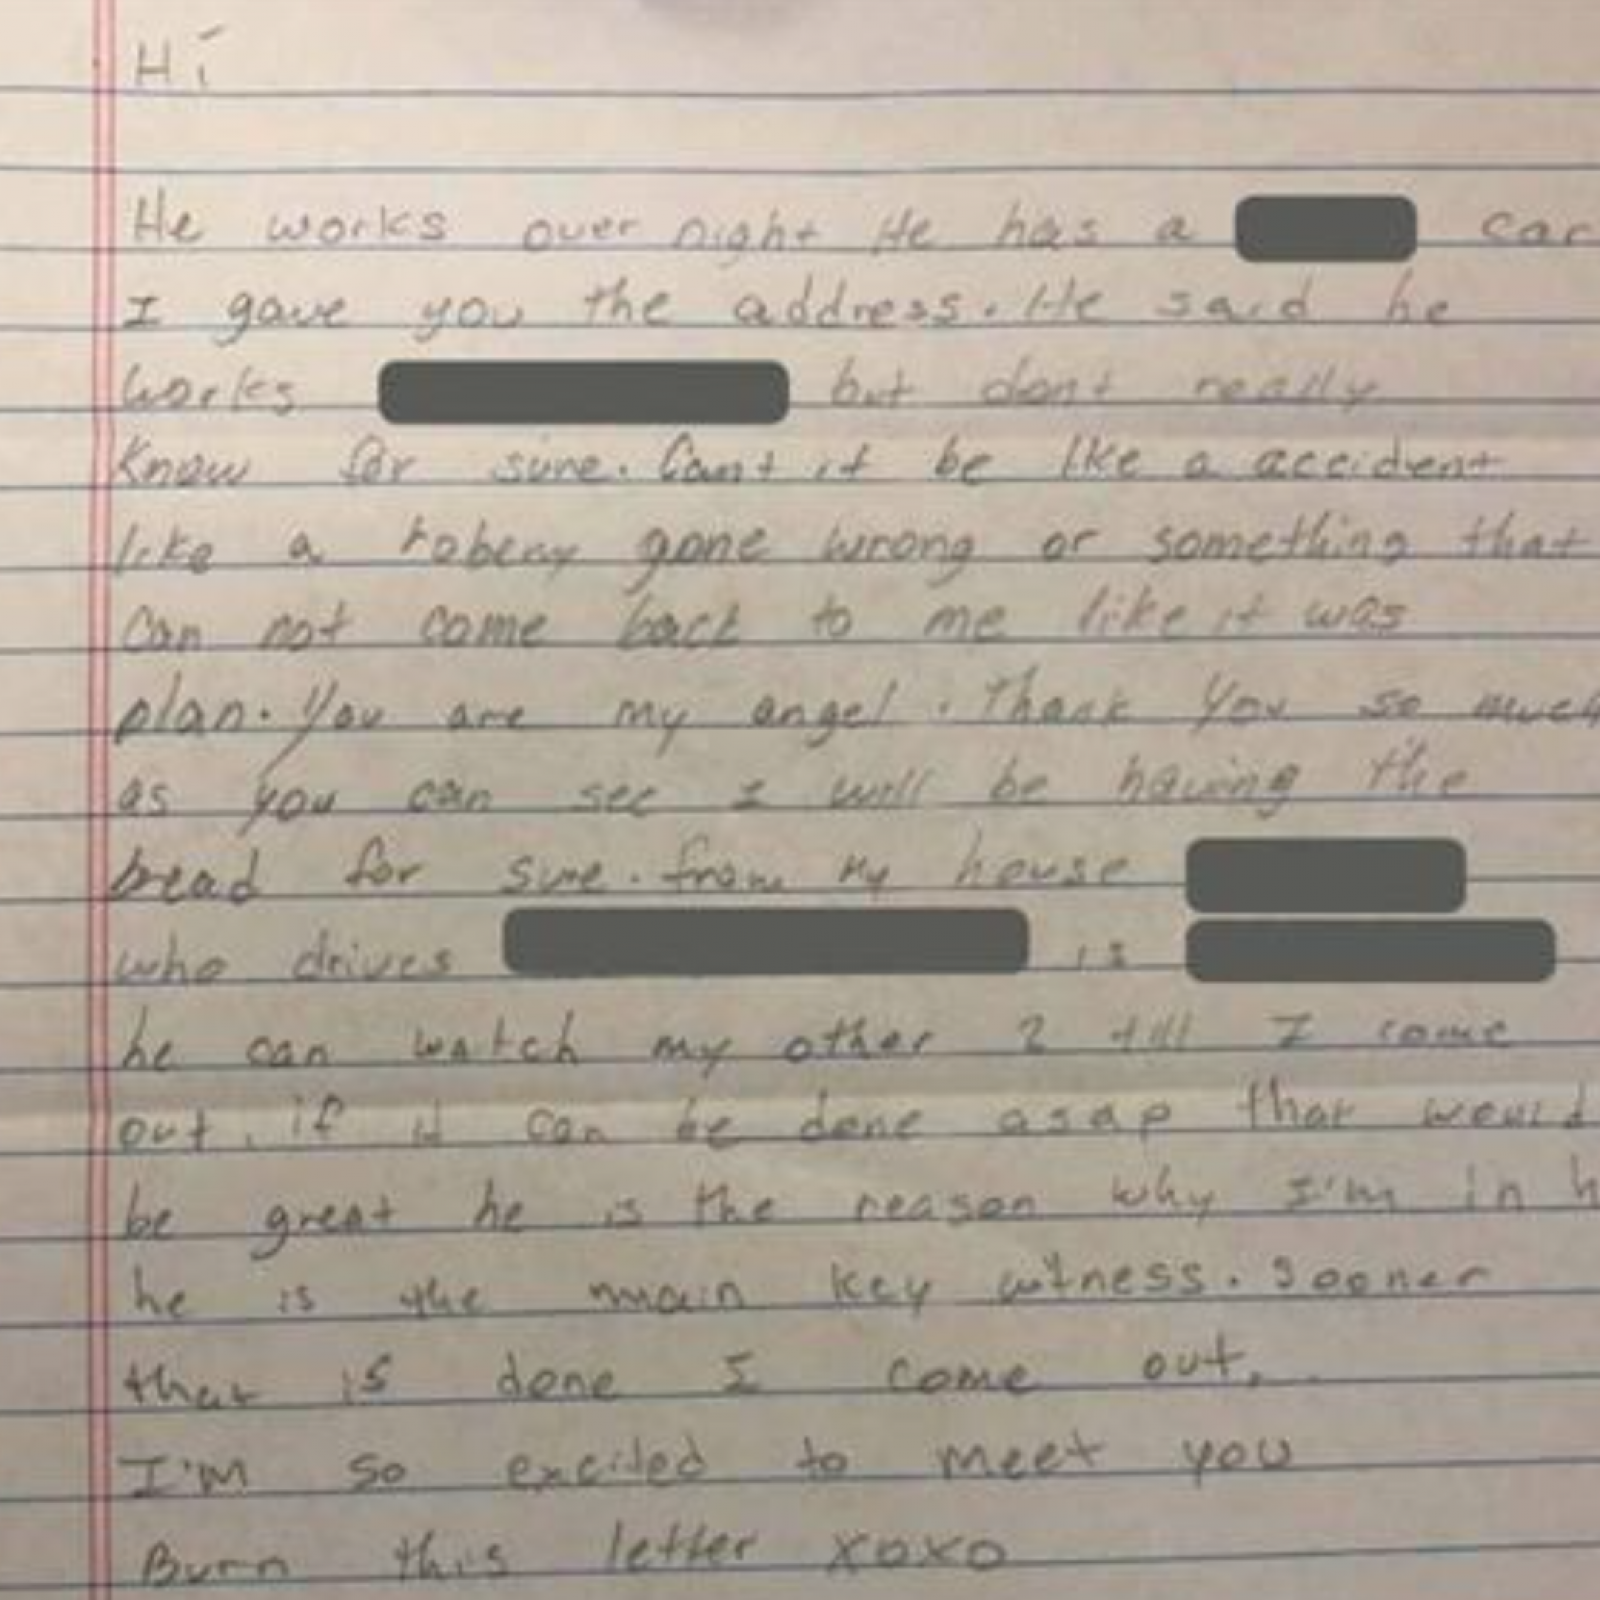 Hi
He works over night He has a car
I gave you the address. He said he
works but dont really
Know for sure. Cant it be like a accident
like a robery gone wrong or something that
can not come back to me like it was
plan. You are my angel. Thank you so much
as you can see I will be having the
bread for sure. from my house
who drives is
he can watch my other 2 till I come
out. if it can be done asap that would
be great he is the reason why I'm in h
he is the main key witness. Sooner
that is done I come out.
I'm so excited to meet you
Burn this letter xoxo